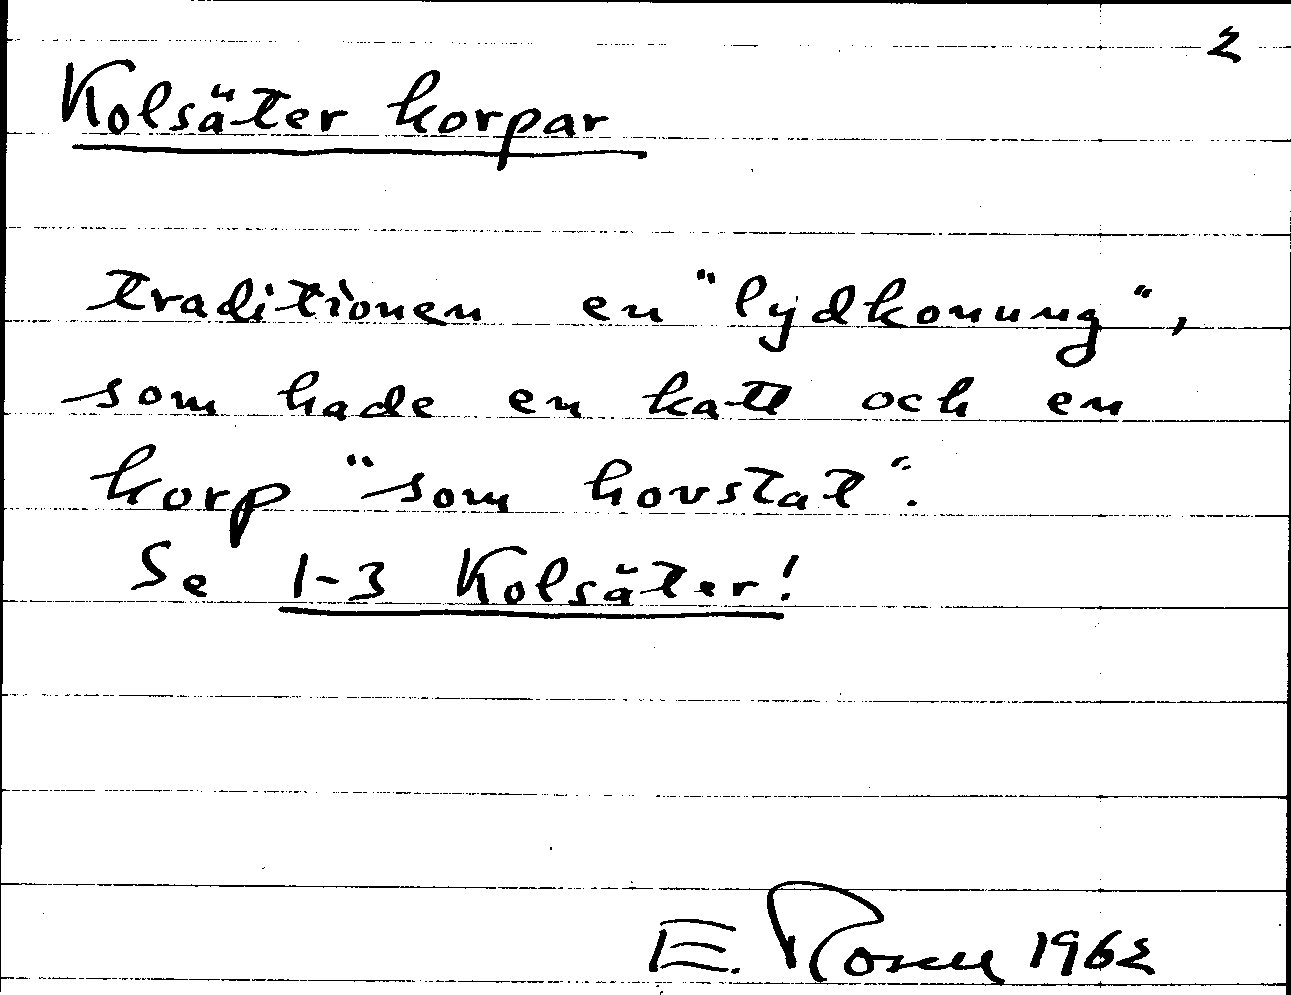 2
Kolsäter korpar
traditionen en "lydkonung",
som hade en katt och en
korp "som hovstat".
Se 1-3 Kolsäter!
E. Rosell 1962